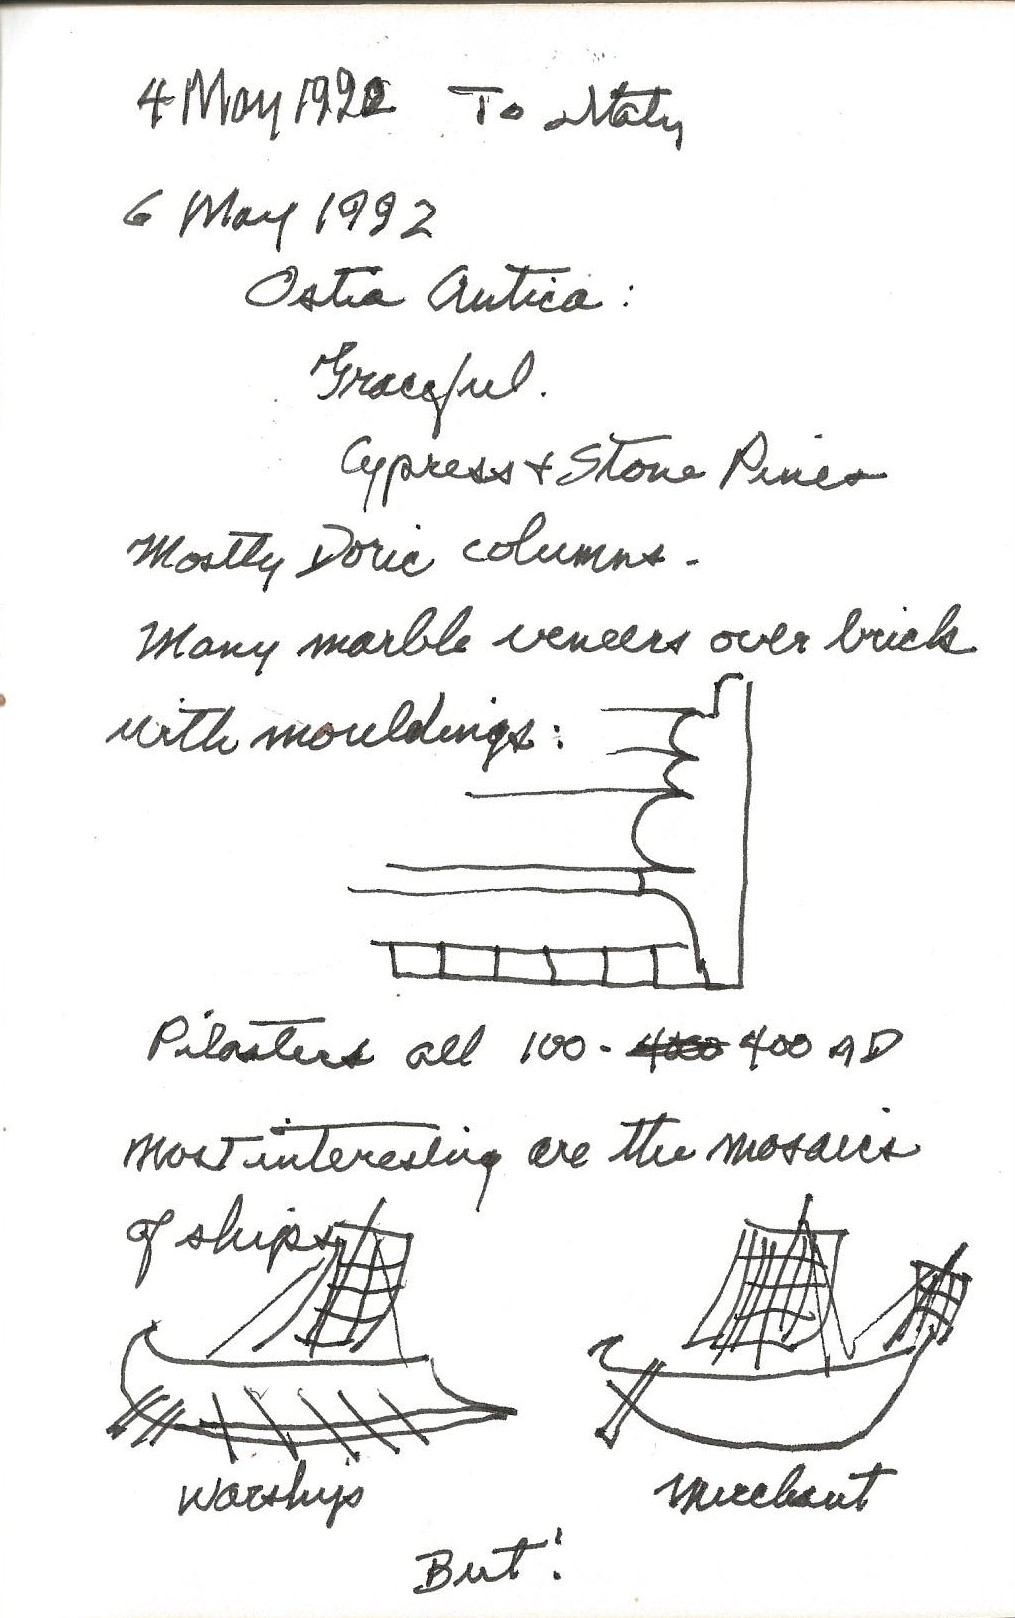 4 May 1992 To Italy
6 May 1992
Ostia Antica:
Graceful.
Cypress + Stone Pines
Mostly Doric columns.
Many marble veneers over brick
with mouldings:
Pilasters all 100 - 400 AD
Most interesting are the mosaics
of ships
Warships
Merchant
But!